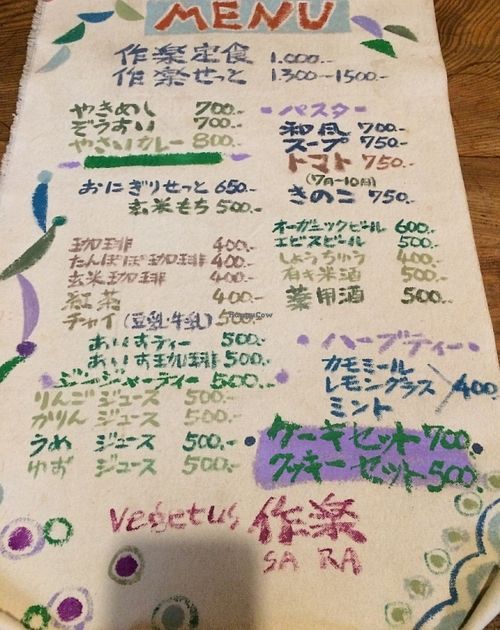 MENU
作楽定食 1.000.-
作楽せっと 1300-1500.-
やきめし 700.-
ぞうすい 700.-
やさいカレー 800.-
おにぎりせっと 650.-
玄米もち 500.-
珈琲 400.-
たんぽぽ珈琲 400.-
玄米珈琲 400.-
紅茶 400.-
チャイ(豆乳・牛乳) 500.-
あいすティー 500.-
あいす珈琲 500.-
ジンジャーティー 500.-
りんごジュース 500.-
かりんジュース 500.-
うめ ジュース 500.-
ゆず ジュース 500.-
パスタ
和風 700.-
スープ 750.-
トマト 750.-
(7月-10月)
きのこ 750.-
オーガニックビール 600.-
エビスビール 500.-
しょうちゅう 400.-
有き米酒 500.-
薬用酒 500.-
ハーブティー
カモミール
レモングラス 400.-
ミント
ケーキセット 700
クッキーセット 500.
vegetus 作楽
SA RA
HappyCow